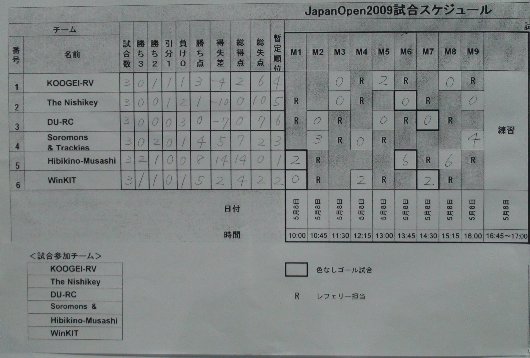 JapanOpen2009試合スケジュール
チーム
番号 名前 試合数 勝ち3 勝ち2 引分1 負け0 勝ち点 得失差 総得点 総失点 暫定順位 M1 M2 M3 M4 M5 M6 M7 M8 M9
1 KOOGEI-RV 3 0 1 1 1 3 -4 2 6 4 0 R 2 R 0 R
2 The Nishikey 3 0 0 1 2 1 -10 0 10 5 R 0 R 0 R 0
3 DU-RC 3 0 0 0 3 0 -7 0 7 6 R 0 R 0 R
4 Soromons & Trackies 3 0 2 0 1 4 5 7 2 3 3 R 0 R 4
5 Hibikino-Musashi 3 2 1 0 0 8 14 14 0 1 2 R 6 R 6 R
6 WinKIT 3 1 1 0 1 5 2 4 2 2 0 R 2 R 2 R
練習
日付 5月8日 5月8日 5月8日 5月8日 5月8日 5月8日 5月8日 5月8日 5月8日 5月8日
時間 10:00 10:45 11:30 12:15 13:00 13:45 14:30 15:15 16:00 16:45～17:00
＜試合参加チーム＞
KOOGEI-RV
The Nishikey
DU-RC
Soromons &
Hibikino-Musashi
WinKIT
色なしゴール試合
R レフェリー担当